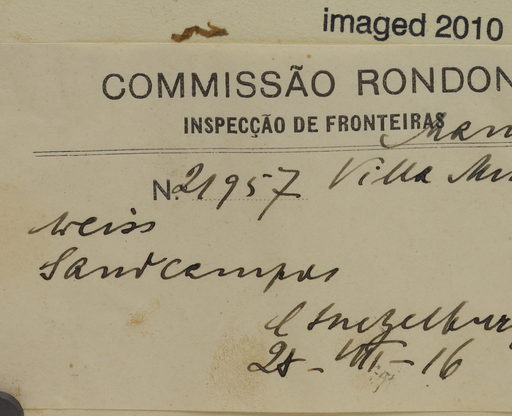 imaged 2010
COMMISSÃO RONDON
INSPECÇÃO DE FRONTEIRAS
N. 21957 Villa
weiss
Sandcampos
28-VIII-16